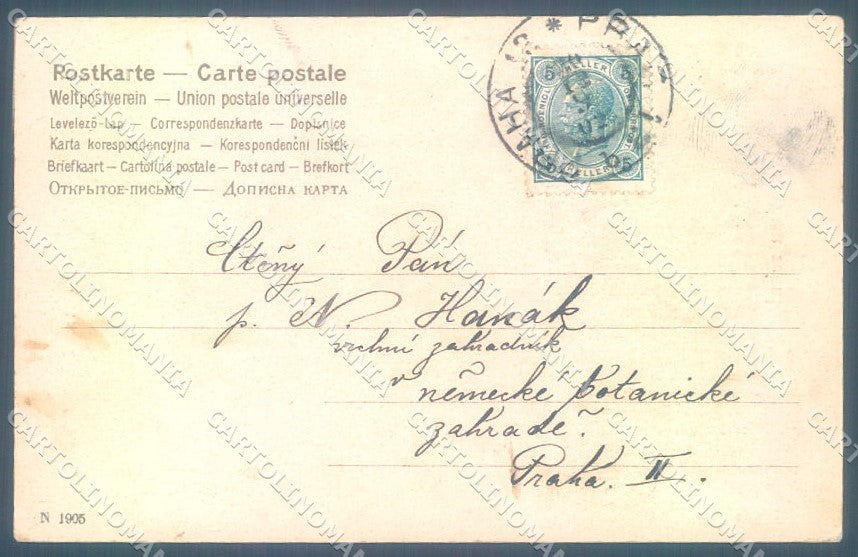 Postkarte — Carte postale
Weltpostverein — Union postale universelle
Levelező-Lap — Correspondenzkarte — Dopisnice
Karta korespondencyjna — Korespondenční lístek
Briefkaart — Cartolina postale — Post card — Brefkort
Открытое-письмо — Дописна карта
PRAG
PRAHA
5 HELLER 5
Ctěný Pán
p. N. Hanák
vrchní zahradník
v německé botanické
zahradě.
Praha. II.
N 1905
CARTOLINOMANIA